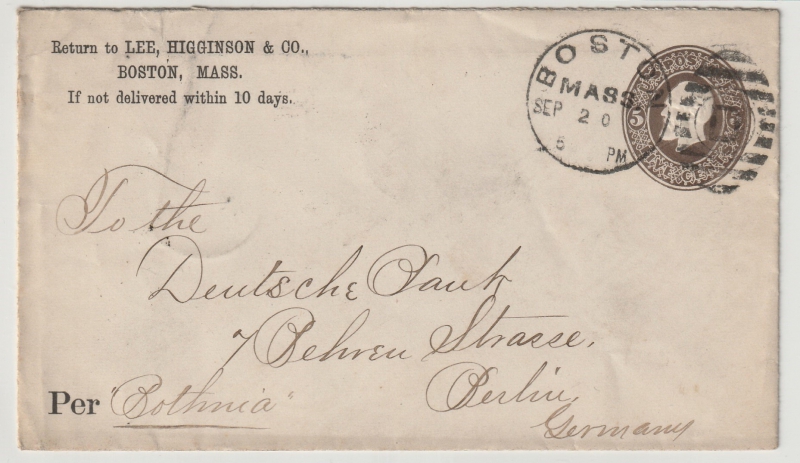 Return to LEE, HIGGINSON & CO.,
BOSTON, MASS.
If not delivered within 10 days.
BOSTO
MASS.
SEP 20
5 PM
5
To the
Deutsche Bank
7 Behren Strasse,
Berlin,
Germany
Per "Bothnia"